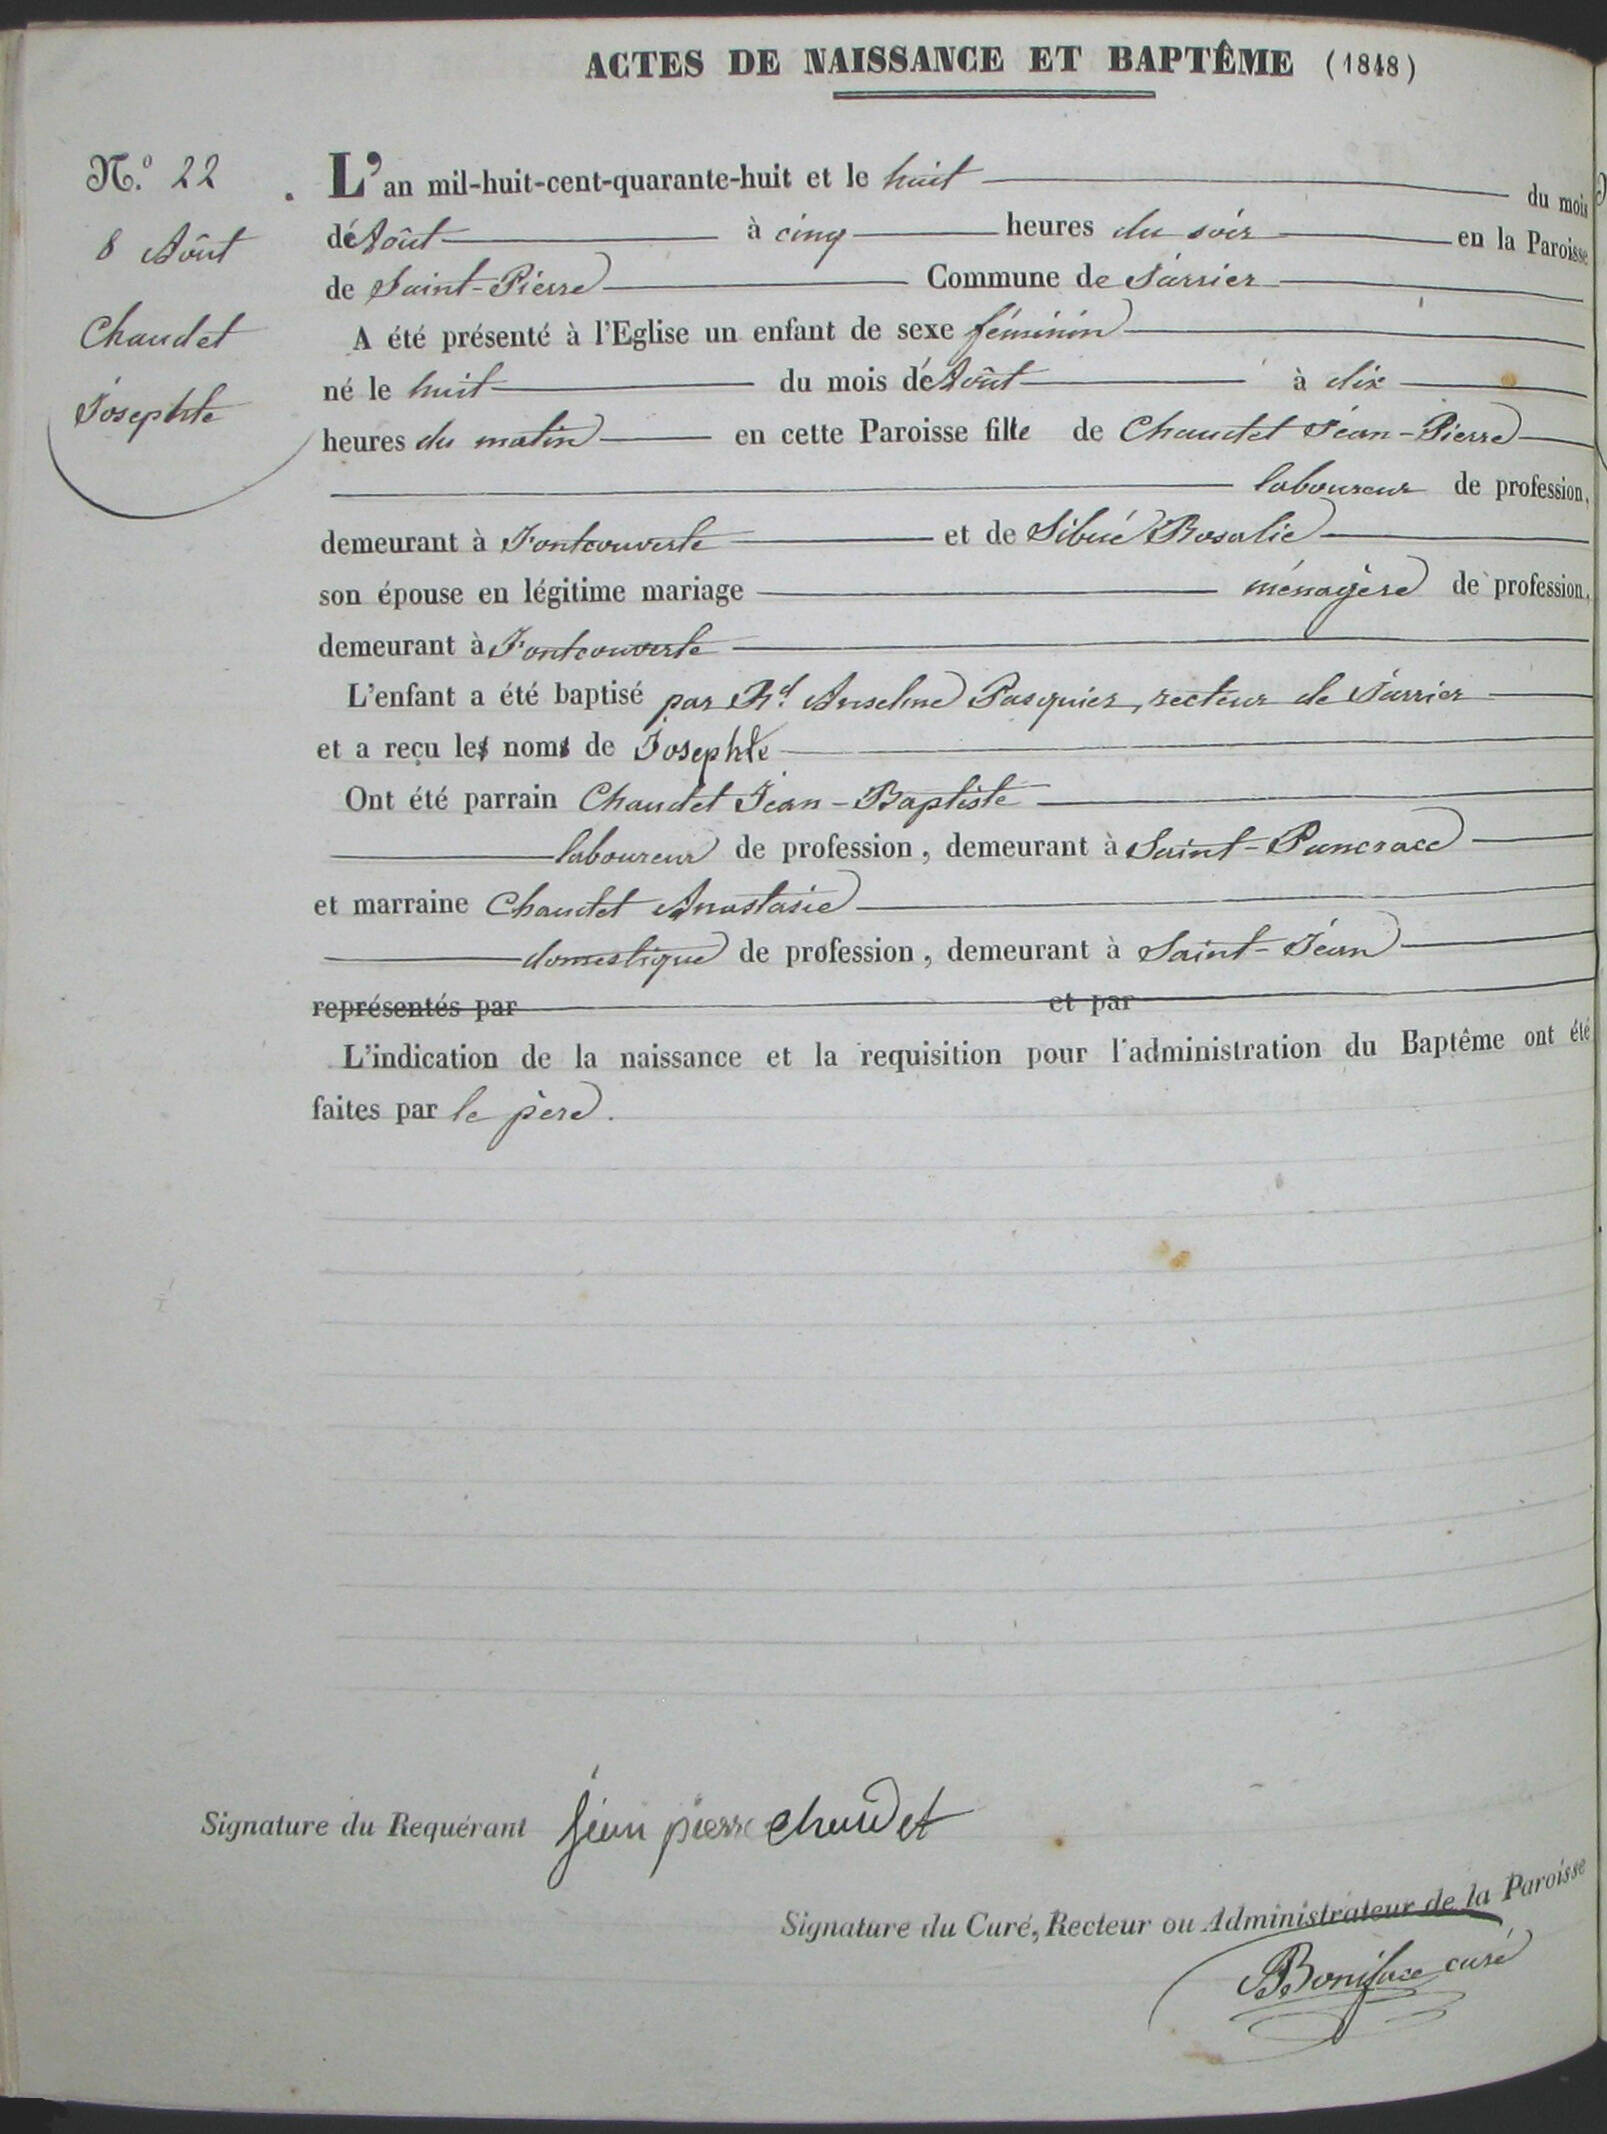 ACTES DE NAISSANCE ET BAPTÊME (1848)
N.º 22
8 Aôut
Chaudet
Josephte
L'an mil-huit-cent-quarante-huit et le huit du mois
d'Aôut à cinq heures du soir en la Paroisse
de Saint-Pierre Commune de Jarrier
A été présenté à l'Eglise un enfant de sexe féminin
né le huit du mois d'Aôut à dix
heures du matin en cette Paroisse fille de Chaudet Jean-Pierre
laboureur de profession,
demeurant à Fontcouverte et de Sibué Rosalie
son épouse en légitime mariage ménagère de profession,
demeurant à Fontcouverte
L'enfant a été baptisé par Rd. Anselme Pasquier, recteur de Jarrier
et a reçu les noms de Josephte
Ont été parrain Chaudet Jean-Baptiste
laboureur de profession, demeurant à Saint-Pancrace
et marraine Chaudet Anastasie
domestique de profession, demeurant à Saint-Jean
représentés par et par
L'indication de la naissance et la requisition pour l'administration du Baptême ont été
faites par le père.
Signature du Requérant jean pierre chaudet
Signature du Curé, Recteur ou Administrateur de la Paroisse
Boniface curé